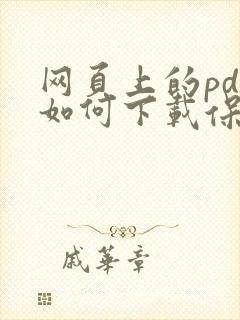 网页上的pd
如何下载保
戚华章